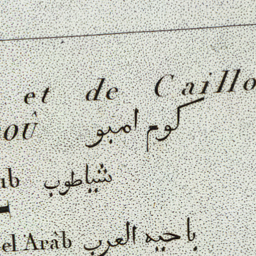 et de Caillo
OÛ كوم امبو
ub شياطوب
el Aràb باحيه العرب